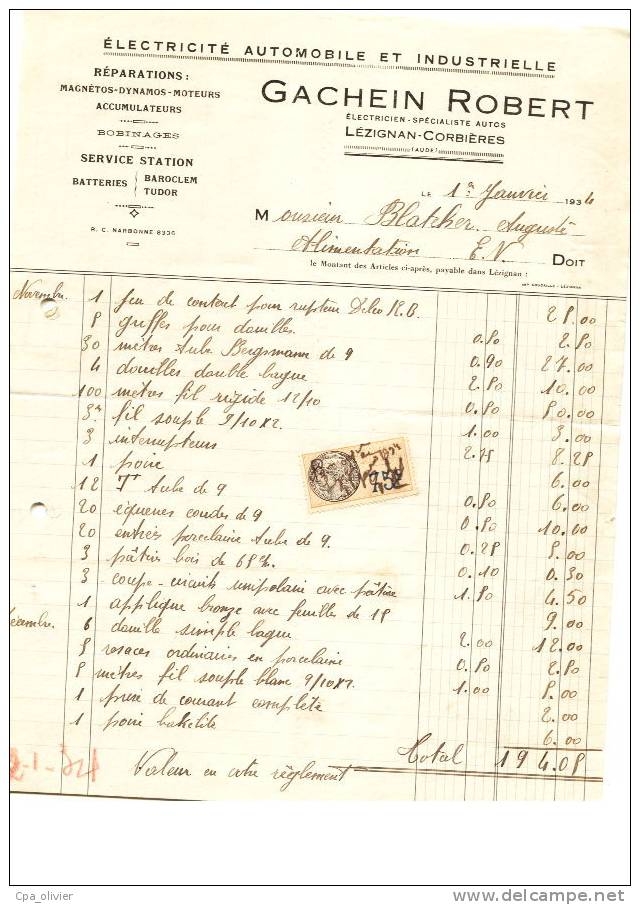 ÉLECTRICITÉ AUTOMOBILE ET INDUSTRIELLE
RÉPARATIONS :
MAGNÉTOS-DYNAMOS-MOTEURS
ACCUMULATEURS
BOBINAGES
SERVICE STATION
BATTERIES BAROCLEM
TUDOR
R. C. NARBONNE 8336
GACHEIN ROBERT
ÉLECTRICIEN-SPÉCIALISTE AUTOS
LÉZIGNAN-CORBIÈRES
(AUDE)
LE 1er Janvier 1934
Monsieur Blatcher Auguste
Alimentation E.V. DOIT
le Montant des Articles ci-après, payable dans Lézignan :
Novembre 1 jeu de contact pour rupteur Delco R.B. 25.00
8 griffes pour douilles 2.80
30 mètres Tube Bergmann de 9 0.90 27.00
4 douilles double bague 10.00
100 mètres fil rigide 12/10
3m fil souple 9/10x2 1.00 3.00
3 interrupteurs 2.75 8.25
1 poire 6.00
12 T Tube de 9 6.00
20 équerres coudes de 9 10.00
20 entrées porcelaine Tube de 9.
3 patins bois de 0.10 0.30
3 coupe-circuits unipolaire avec patine 4.50
1 applique bronze avec feuille de 9.00
Décembre 6 douille simple bague 2.00 12.00
rosaces ordinaires en porcelaine
mètres fil souple blanc 9/10x2 1.00
1 prise de courant complète 2.00
1 poire bakelite 6.00
Total 194.05
Valeur en votre règlement
2-1-34
Cpa_olivier
www.delcampe.net